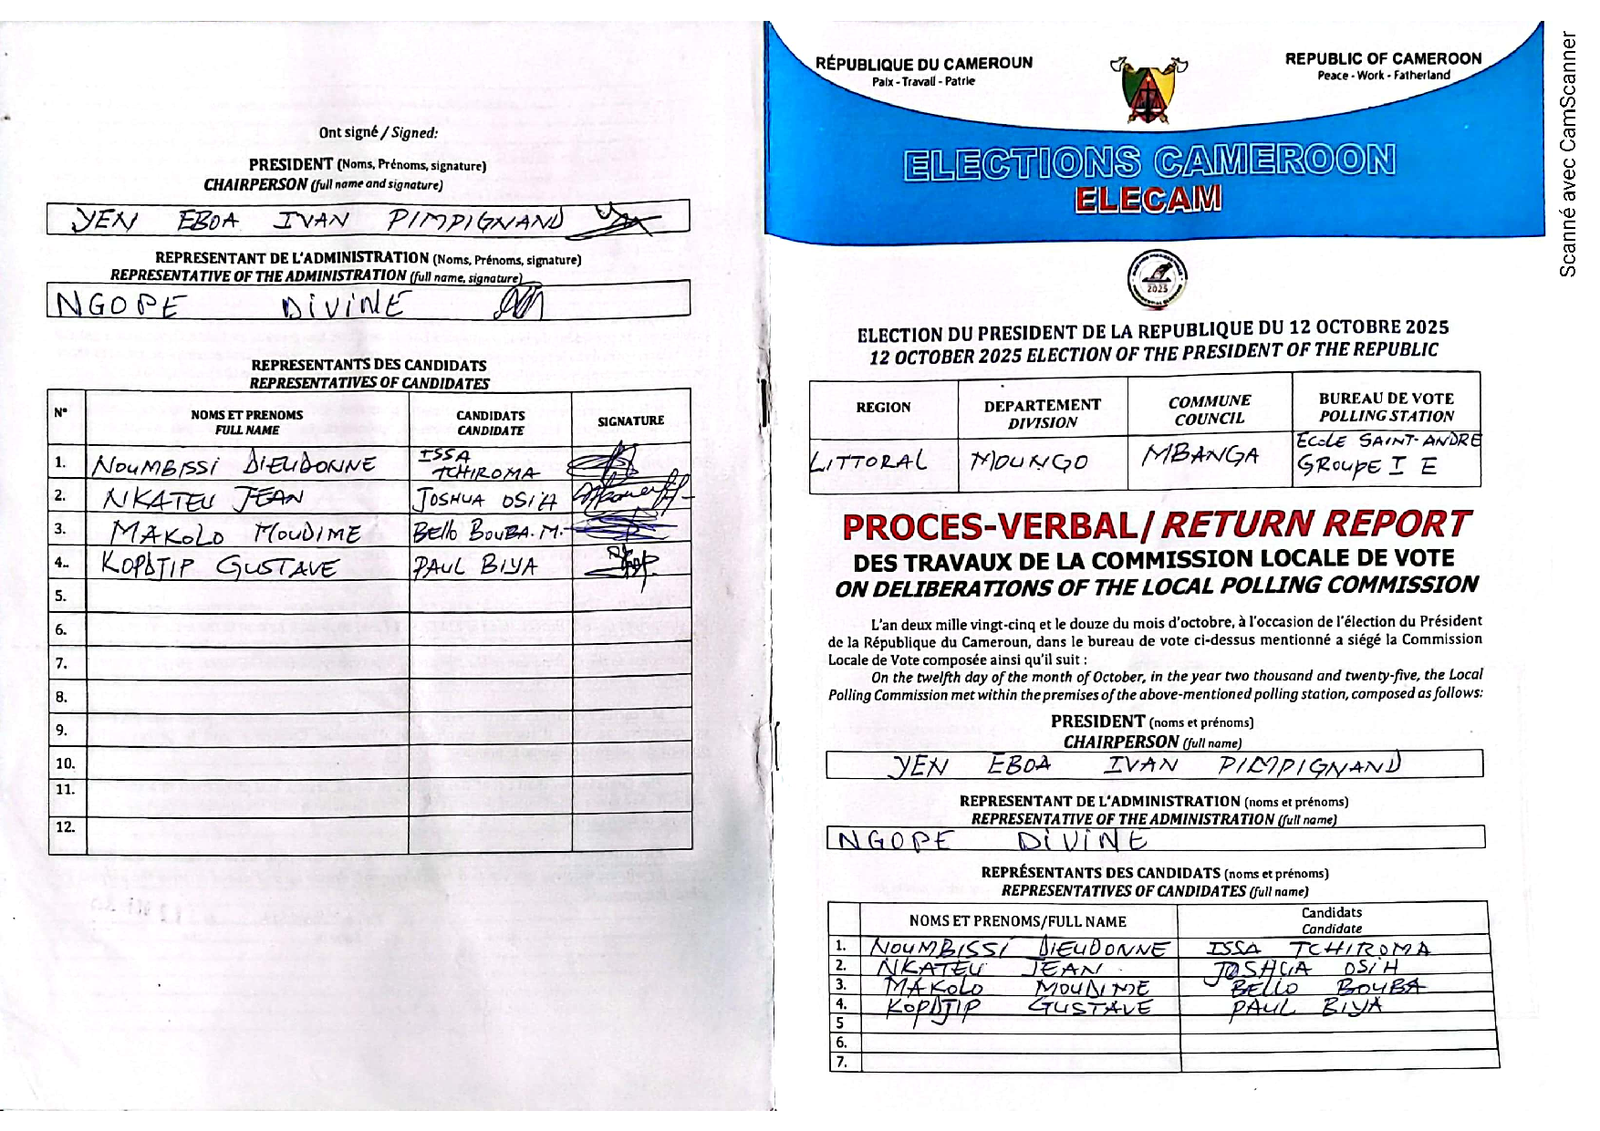 Ont signé / Signed:
PRESIDENT (Noms, Prénoms, signature)
CHAIRPERSON (full name and signature)
YEN EBOA IVAN PIMPIGNAND
REPRESENTANT DE L'ADMINISTRATION (Noms, Prénoms, signature)
REPRESENTATIVE OF THE ADMINISTRATION (full name, signature)
NGOPE DIVINE
REPRESENTANTS DES CANDIDATS
REPRESENTATIVES OF CANDIDATES
N° NOMS ET PRENOMS FULL NAME CANDIDATS CANDIDATE SIGNATURE
1. NOUMBISSI DIEUDONNE ISSA TCHIROMA
2. NKATEU JEAN JOSHUA OSIH
3. MAKOLO MOUDIME BELLO BOUBA.M.
4. KOPDJIP GUSTAVE PAUL BIYA
5.
6.
7.
8.
9.
10.
11.
12.
RÉPUBLIQUE DU CAMEROUN
Paix - Travail - Patrie
REPUBLIC OF CAMEROON
Peace - Work - Fatherland
ELECTIONS CAMEROON
ELECAM
2025
ELECTION DU PRESIDENT DE LA REPUBLIQUE DU 12 OCTOBRE 2025
12 OCTOBER 2025 ELECTION OF THE PRESIDENT OF THE REPUBLIC
REGION DEPARTEMENT DIVISION COMMUNE COUNCIL BUREAU DE VOTE POLLING STATION
LITTORAL MOUNGO MBANGA ECOLE SAINT-ANDRE GROUPE I E
PROCES-VERBAL/ RETURN REPORT
DES TRAVAUX DE LA COMMISSION LOCALE DE VOTE
ON DELIBERATIONS OF THE LOCAL POLLING COMMISSION
L'an deux mille vingt-cinq et le douze du mois d'octobre, à l'occasion de l'élection du Président
de la République du Cameroun, dans le bureau de vote ci-dessus mentionné a siégé la Commission
Locale de Vote composée ainsi qu'il suit :
On the twelfth day of the month of October, in the year two thousand and twenty-five, the Local
Polling Commission met within the premises of the above-mentioned polling station, composed as follows:
PRESIDENT (noms et prénoms)
CHAIRPERSON (full name)
YEN EBOA IVAN PIMPIGNAND
REPRESENTANT DE L'ADMINISTRATION (noms et prénoms)
REPRESENTATIVE OF THE ADMINISTRATION (full name)
NGOPE DIVINE
REPRÉSENTANTS DES CANDIDATS (noms et prénoms)
REPRESENTATIVES OF CANDIDATES (full name)
NOMS ET PRENOMS/FULL NAME Candidats Candidate
1. NOUMBISSI DIEUDONNE ISSA TCHIROMA
2. NKATEU JEAN JOSHUA OSIH
3. MAKOLO MOUDIME BELLO BOUBA
4. KOPDJIP GUSTAVE PAUL BIYA
5
6.
7.
Scanné avec CamScanner